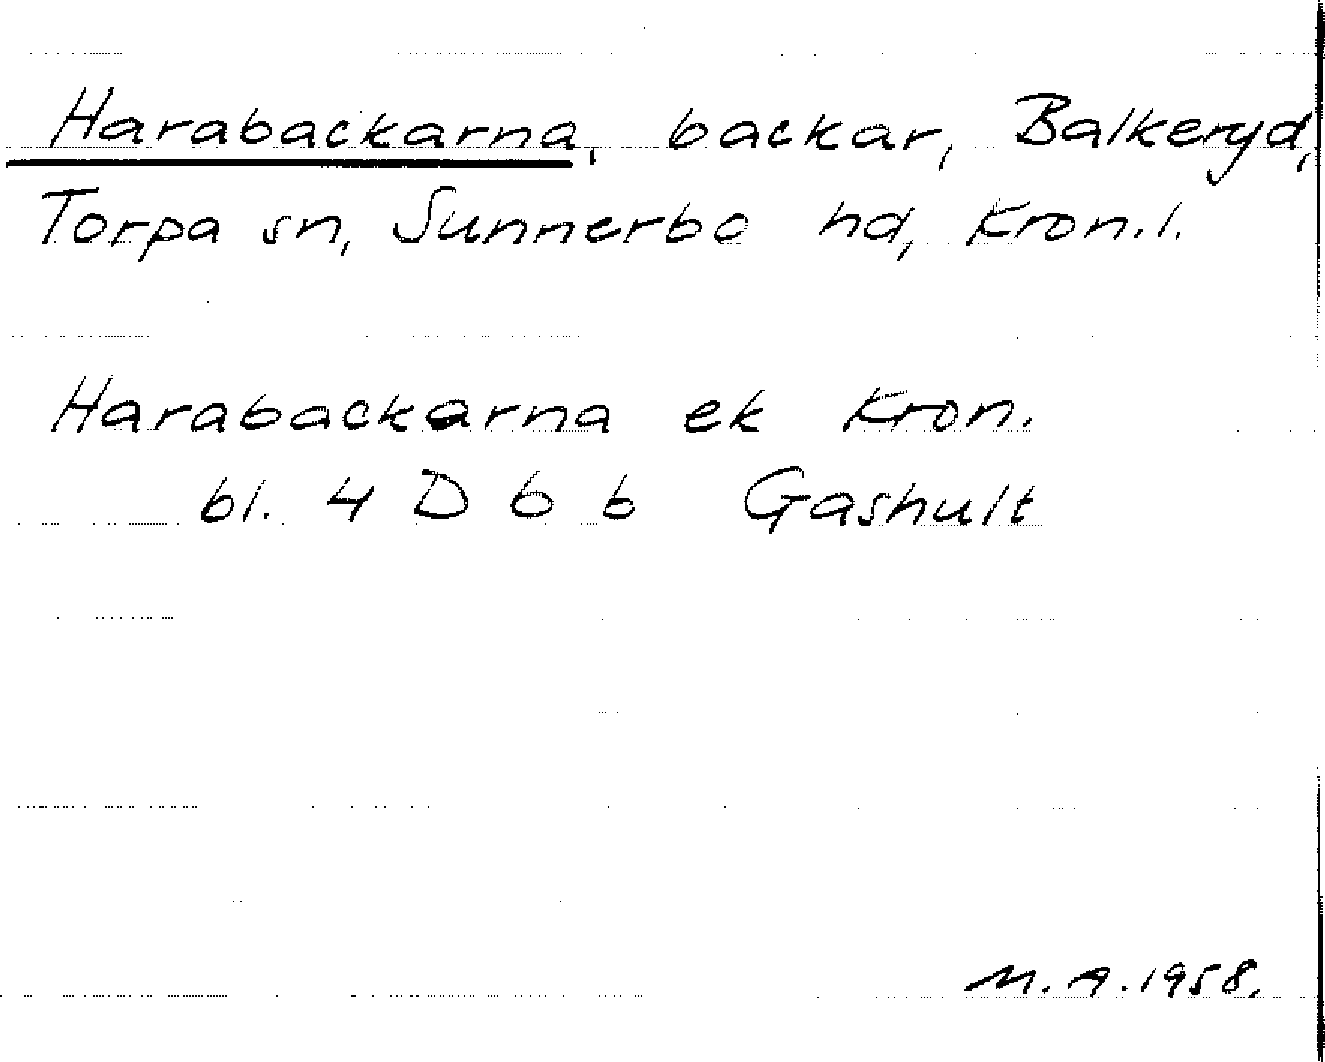 Harabackarna, backar, Balkeryd,
Torpa sn, Sunnerbo hd, Kron.l.
Harabackarna ek Kron.
bl. 4 D 6 b Gashult
M.A.1958.